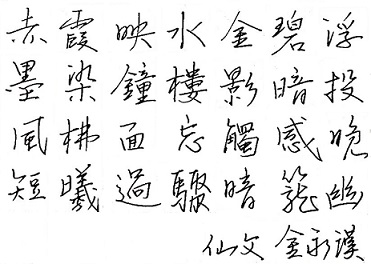 赤霞映水金碧浮
墨染鐘樓影暗投
風拂面忘觸感晚
短曦過驟暗籠幽
仙文 金永漢